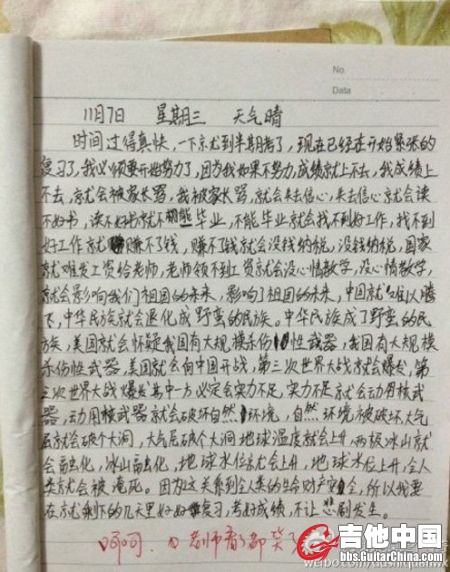 No.
Data
11月7日 星期三 天气晴
时间过得真快，一下就到半期考了，现在已经在开始紧张的
复习了，我必须要开始努力了，因为我如果不努力，成绩就上不去，我成绩上
不去，就会被家长骂，我被家长骂，就会失去信心，失去信心就会读
不好书，读不好书就不能毕业，不能毕业就会找不到好工作，找不到
好工作就赚不了钱，赚不了钱就会没钱纳税，没钱纳税，国家
就难发工资给老师，老师领不到工资就会没心情教学，没心情教学，
就会影响我们祖国的未来，影响了祖国的未来，中国就难以腾
飞，中华民族就会退化成野蛮的民族。中华民族成了野蛮的民
族，美国就会怀疑我国有大规模杀伤性武器，我国有大规
模杀伤性武器，美国就会向中国开战，第三次世界大战就会爆发，第
三次世界大战爆发其中一方必定会实力不足，实力不足就会动用核武
器，动用核武器就会破坏自然环境，自然环境被破坏，大气
层就会破个大洞，大气层破个大洞地球温度就会上升，两极冰山就
会融化，冰山融化，地球水位就会上升，地球水位上升，全人
类就会被淹死。因为这关系到全人类的生命财产安全，所以我要
在就剩下的几天里好好复习，考好成绩，不让悲剧发生。
呵呵，老师看了都笑了
吉他中国
bbs.GuitarChina.com